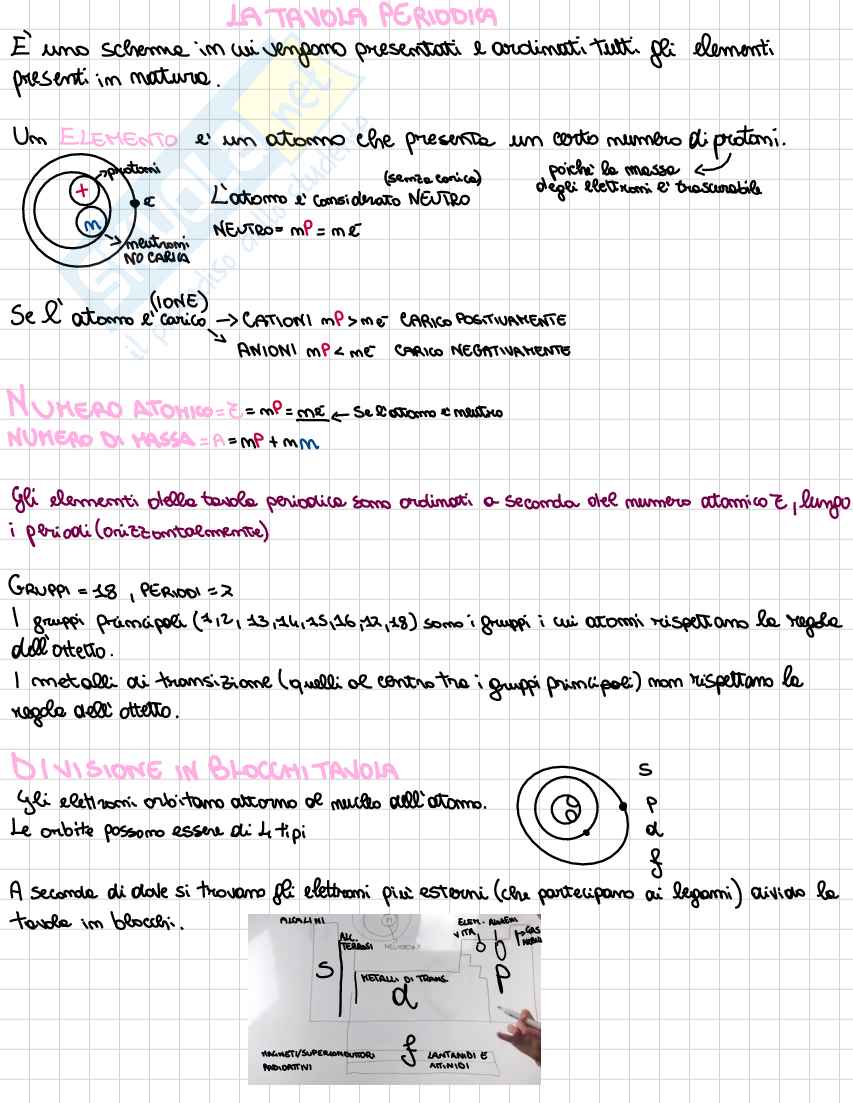 LA TAVOLA PERIODICA
È uno schema in cui vengono presentati e ordinati tutti gli elementi
presenti in natura.
Un ELEMENTO e' un atomo che presenta un certo numero di protoni.
poichè la massa
degli elettroni e' trascurabile
protoni
+
n
e-
neutroni
NO CARICA
(senza carica)
L'atomo e' considerato NEUTRO
NEUTRO = nP = ne-
(IONE)
Se l'atomo e' carico → CATIONI nP > ne- CARICO POSITIVAMENTE
ANIONI nP < ne- CARICO NEGATIVAMENTE
NUMERO ATOMICO = Z = nP = ne- ← Se l'atomo e' neutro
NUMERO DI MASSA = A = nP + nn
Gli elementi della tavola periodica sono ordinati a seconda del numero atomico Z, lungo
i periodi (orizzontalmente)
GRUPPI = 18, PERIODI = 7
I gruppi principali (1,2, 13,14,15,16,17,18) sono i gruppi i cui atomi rispettano la regola
dell'ottetto.
I metalli di transizione (quelli al centro tra i gruppi principali) non rispettano la
regola dell'ottetto.
DIVISIONE IN BLOCCHI TAVOLA
Gli elettroni orbitano attorno al nucleo dell'atomo.
Le orbite possono essere di 4 tipi
s
p
d
f
A seconda di dove si trovano gli elettroni più esterni (che partecipano ai legami) divido la
tavola in blocchi.
ALCALINI
ALC.
TERROSI
ELEM.
VITA
ALOGENI
GAS
NOBILI
S
METALLI DI TRANS.
d
P
f
MAGNETI/SUPERCONDUTTORI
RADIOATTIVI
LANTANIDI E
ATTINIDI